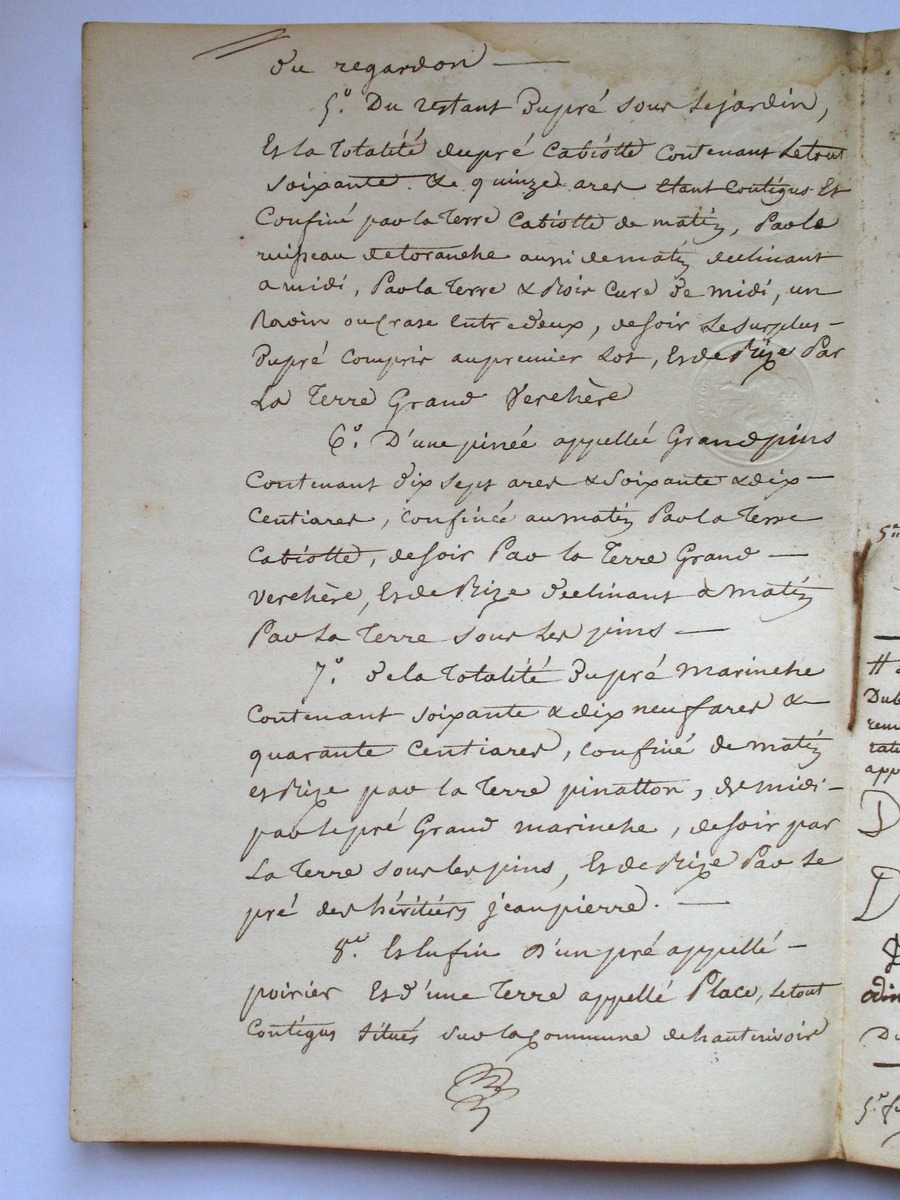 du regardon —
5.° Du restant Dupré sous Lejardin,
Et la Totalité dupré Cabiotte Contenant Letout
soixante & quinze ares Etant Contigus Et
Confiné par la Terre Cabiotte de matin, Par le
ruisseau de aussi de matin declinant
a midi, Par la Terre & Bois Cure de midi, un
Ravin ou Rase Entre deux, de soir Le surplus –
Dupré Compris au premier Lot, Et de Bize Par
La Terre Grand Verchère
6.° D'une pinée appellée Grand pins
Contenant dix sept ares & soixante & dix –
Centiares, confinée au matin Par la Terre
Cabiotte, de soir Par la Terre Grand —
Verchère, Et de Bize declinant a matin
Par La Terre sous Les pins —
7.° de la Totalité Dupré marinche
Contenant soixante & dix neuf ares &
quarante Centiares, confiné de matin
et Bize par la Terre pinatton, de midi –
par le pré Grand marinche, de soir par
La Terre sous les pins, Et de Bize Par Le
pré des héritiers jeanpierre. —
8.° Et Enfin d'un pré appellé –
poirier Et d'une Terre appellé Place, Letout
Contigus situés sur la Commune de hautrivoir
5.
Dub
app
D
D
odin
Du
5.°